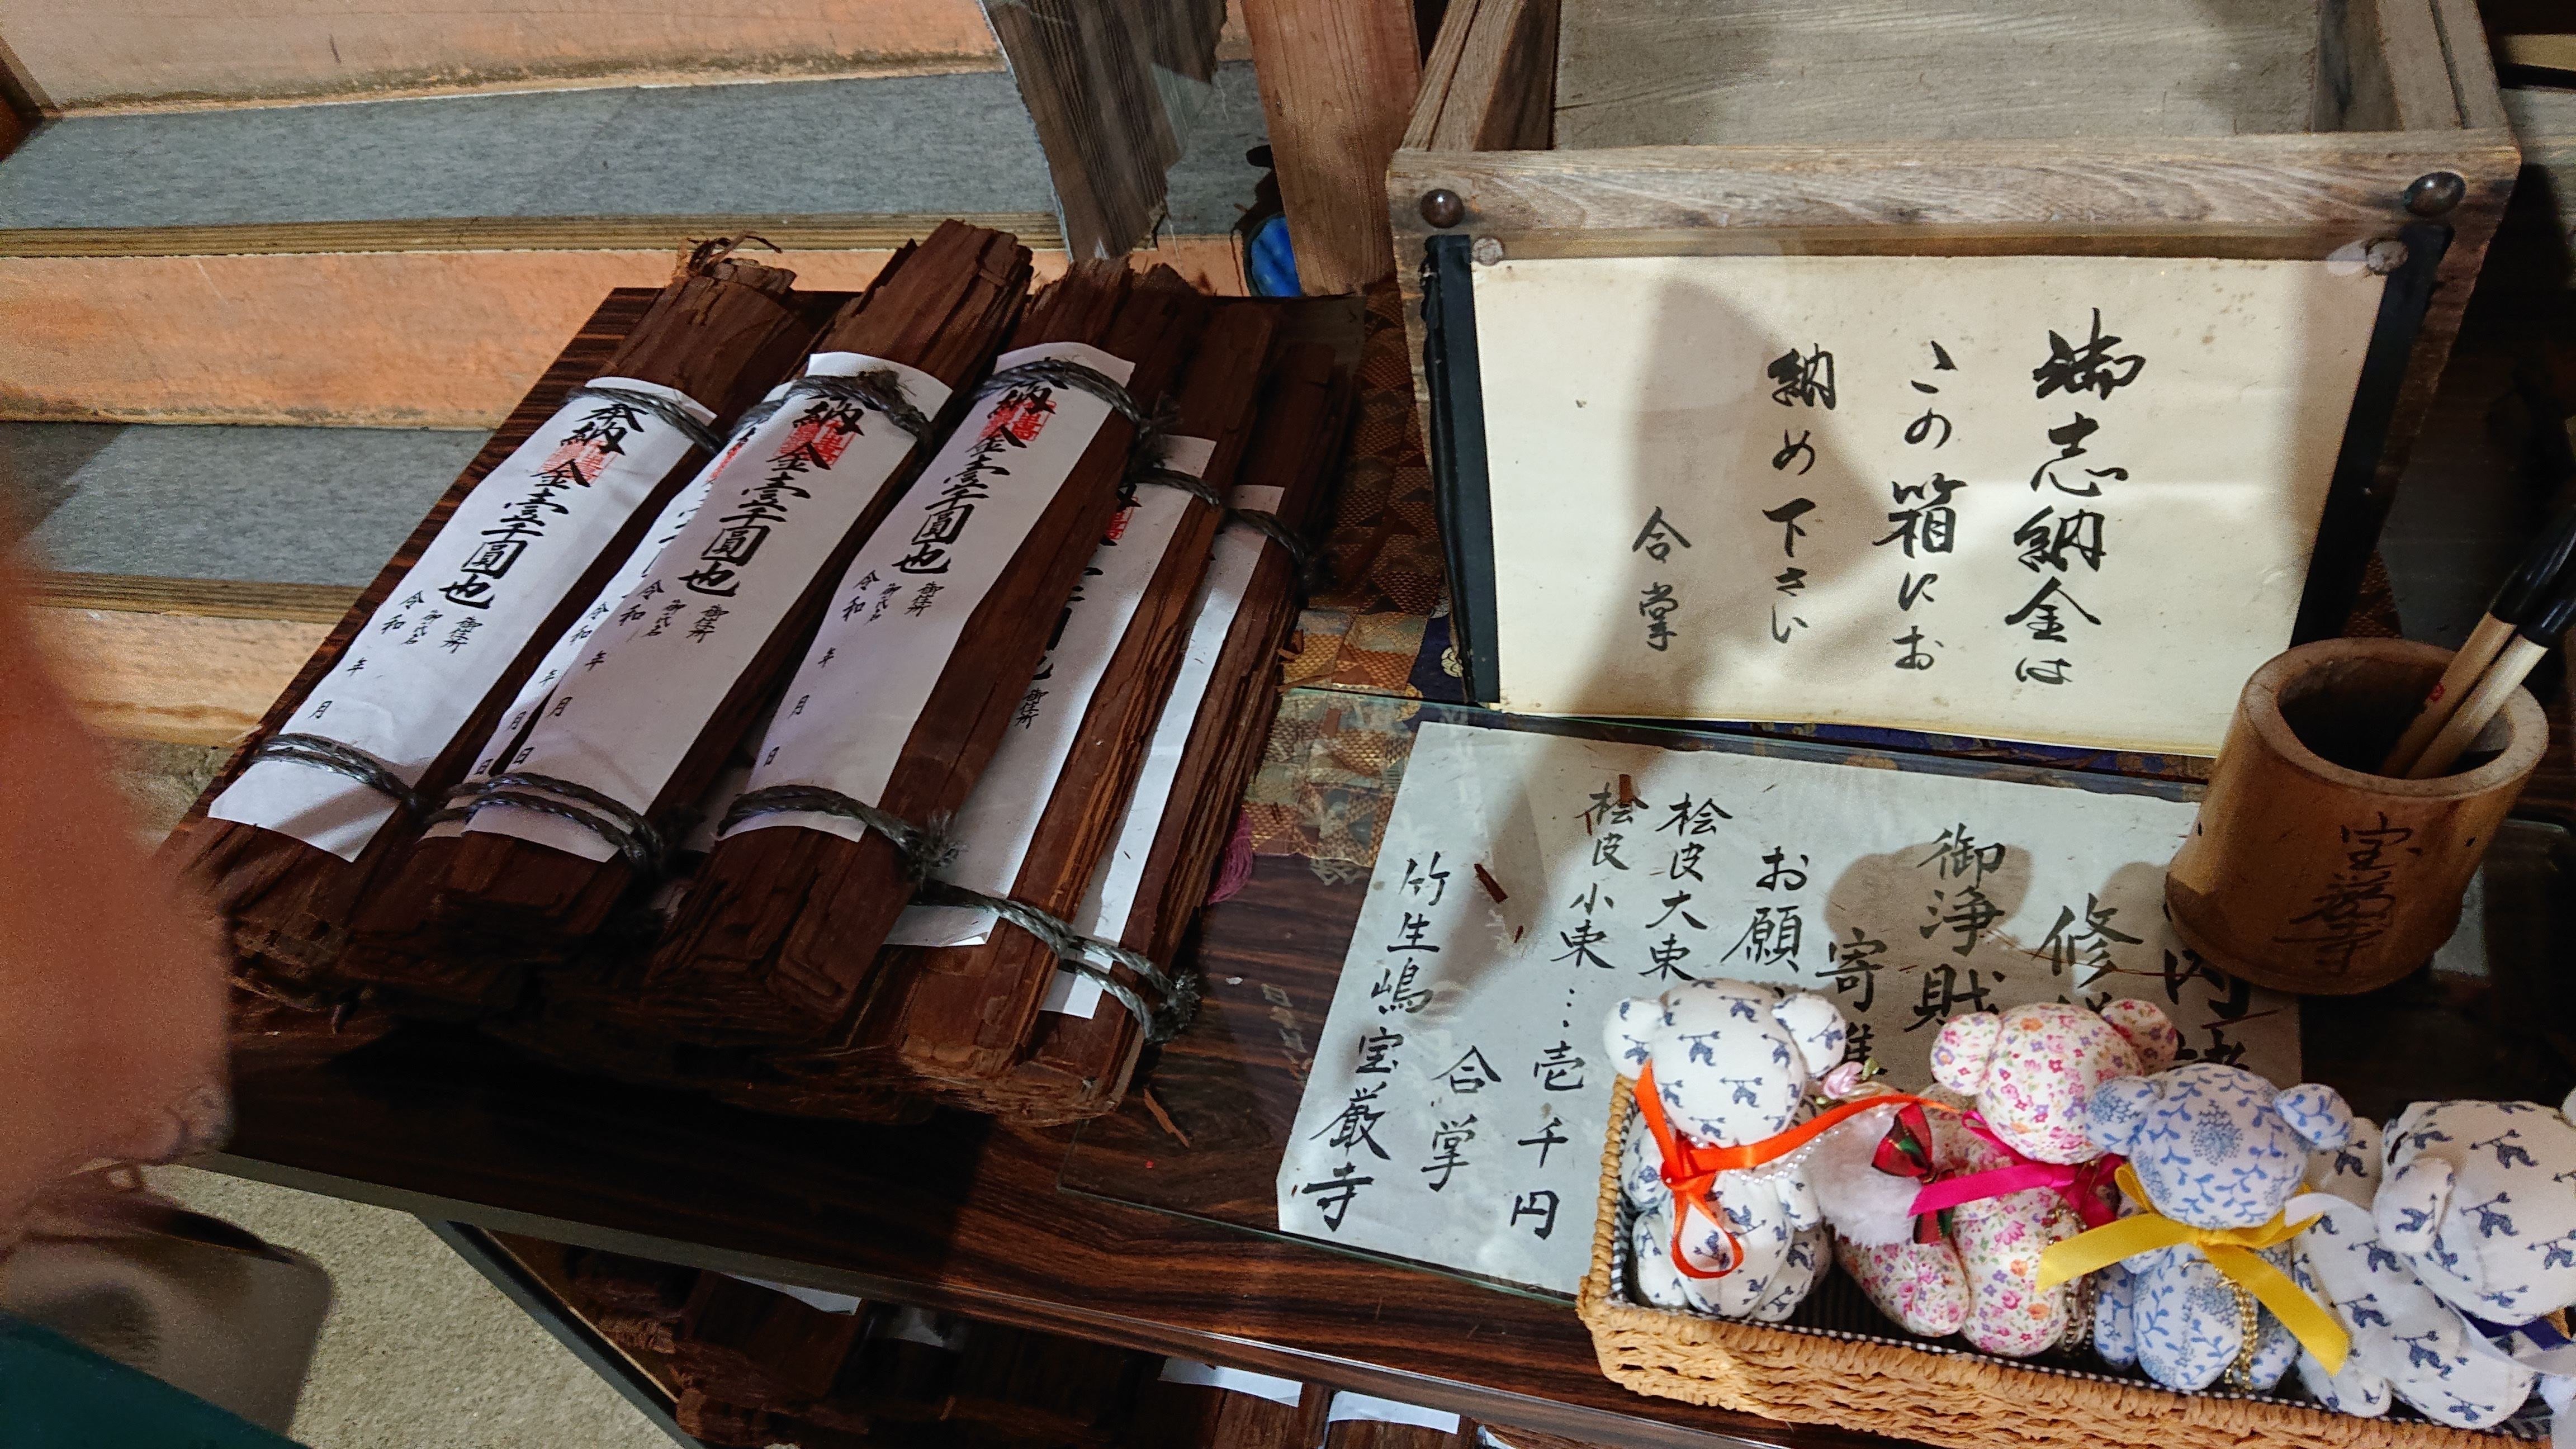 御志納金は
この箱にお
納め下さい
合掌
修
御浄財
寄進
お願
桧皮大束
桧皮小束…壱千円
合掌
竹生嶋宝厳寺
宝厳寺
奉納 金壹千圓也
御住所
御氏名
令和 年 月
納 金壹千圓也
御住所
御氏名
令和 年 月 日
納 金壹千圓也
御住所
御氏名
令和 年 月 日
御住所